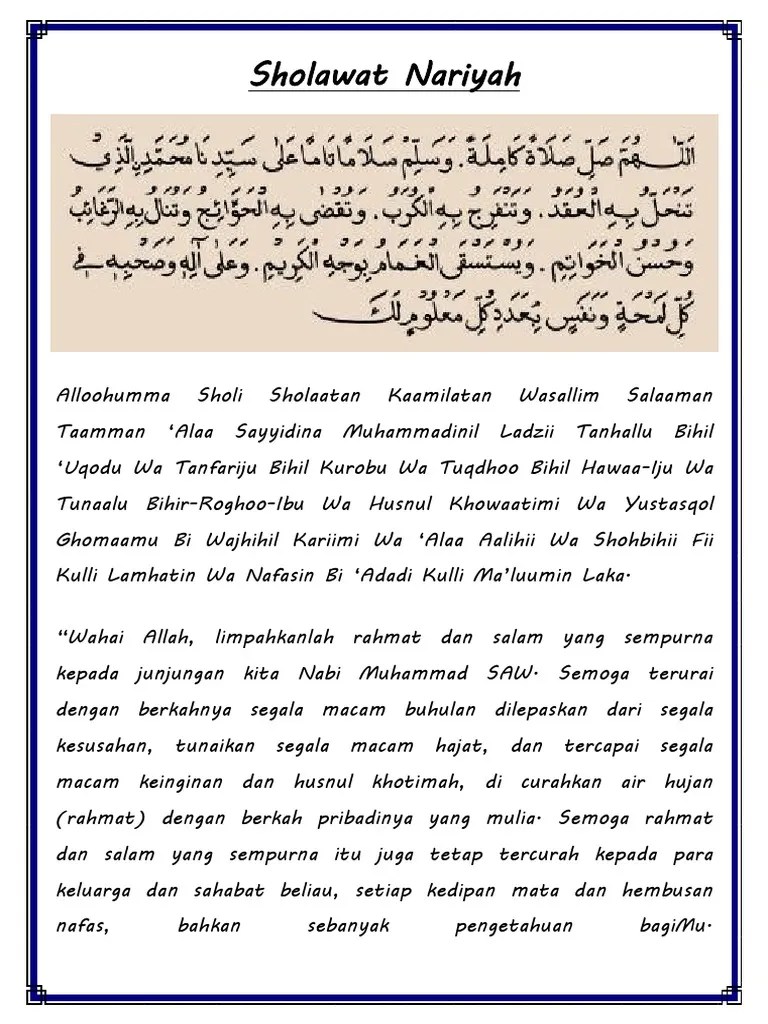 Sholawat Nariyah
اَللّٰهُمَّ صَلِّ صَلَاةً كَامِلَةً . وَسَلِّمْ سَلَامًا تَامًّا عَلٰى سَيِّدِنَا مُحَمَّدِ ࣙالَّذِيْ
تَنْحَلُّ بِهِ الْعُقَدُ . وَتَنْفَرِجُ بِهِ الْكُرَبُ . وَتُقْضٰى بِهِ الْحَوَائِجُ وَتُنَالُ بِهِ الرَّغَائِبُ
وَحُسْنُ الْخَوَاتِمِ . وَيُسْتَسْقَى الْغَمَامُ بِوَجْهِهِ الْكَرِيْمِ . وَعَلٰى آلِهِ وَصَحْبِهِ فِيْ
كُلِّ لَمْحَةٍ وَنَفَسٍ بِعَدَدِ كُلِّ مَعْلُوْمٍ لَكَ
Alloohumma Sholi Sholaatan Kaamilatan Wasallim Salaaman
Taamman ‘Alaa Sayyidina Muhammadinil Ladzii Tanhallu Bihil
‘Uqodu Wa Tanfariju Bihil Kurobu Wa Tuqdhoo Bihil Hawaa-Iju Wa
Tunaalu Bihir-Roghoo-Ibu Wa Husnul Khowaatimi Wa Yustasqol
Ghomaamu Bi Wajhihil Kariimi Wa ‘Alaa Aalihii Wa Shohbihii Fii
Kulli Lamhatin Wa Nafasin Bi ‘Adadi Kulli Ma’luumin Laka.
“Wahai Allah, limpahkanlah rahmat dan salam yang sempurna
kepada junjungan kita Nabi Muhammad SAW. Semoga terurai
dengan berkahnya segala macam buhulan dilepaskan dari segala
kesusahan, tunaikan segala macam hajat, dan tercapai segala
macam keinginan dan husnul khotimah, di curahkan air hujan
(rahmat) dengan berkah pribadinya yang mulia. Semoga rahmat
dan salam yang sempurna itu juga tetap tercurah kepada para
keluarga dan sahabat beliau, setiap kedipan mata dan hembusan
nafas, bahkan sebanyak pengetahuan bagiMu.